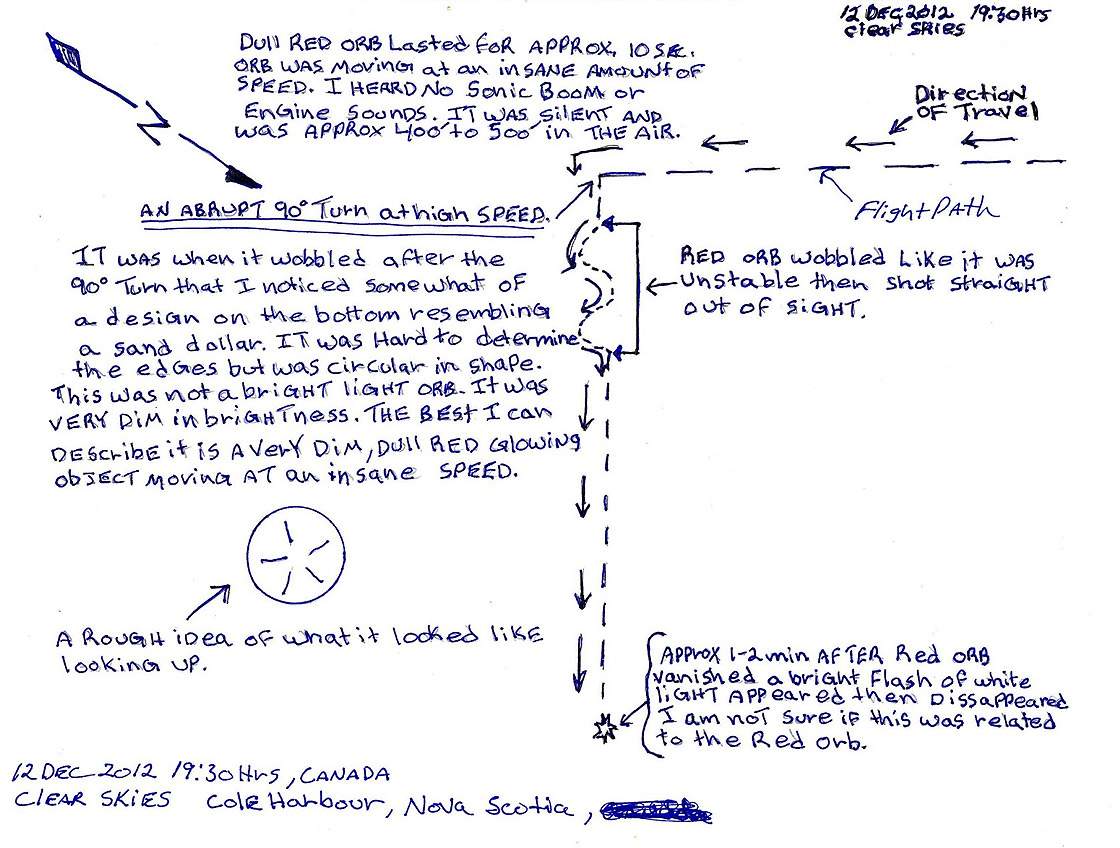 12 DEC 2012 19:30Hrs
Clear SKies
Dull RED ORB Lasted FOR APPROX, 10 SEC.
ORB WAS Moving at an inSANE AMOUNT OF
SPEED. I HEARD No Sonic Boom or
Engine Sounds. IT WAS Silent AND
was APPROX 400' to 500' in THE AiR.
Direction
OF Travel
AN ABRUPT 90° Turn at high SPEED.
FlightPath
IT was when it wobbled after the
90° Turn that I noticed somewhat of
a design on the bottom resembling
a sand dollar. IT was Hard to determine
the edges but was circular in shape.
This was not a briGHT liGHT ORB. It was
VERY Dim in briGHTness. THE BEST I can
DEScribe it is A VerY Dim, Dull RED Glowing
OBJECT moving AT an insane SPEED.
RED ORB wobbled Like it was
Unstable then shot StraiGHT
out of SiGHT.
A ROUGH iDEA of what it looked like
looking UP.
APProx 1-2 min AFTER Red ORB
vanished a bright Flash of white
liGHT APPeared then DissAPPeared
I am not sure if this was related
to the Red orb.
12 DEC 2012 19:30Hrs, CANADA
CleAR SKiES Cole Harbour, Nova Scotia,